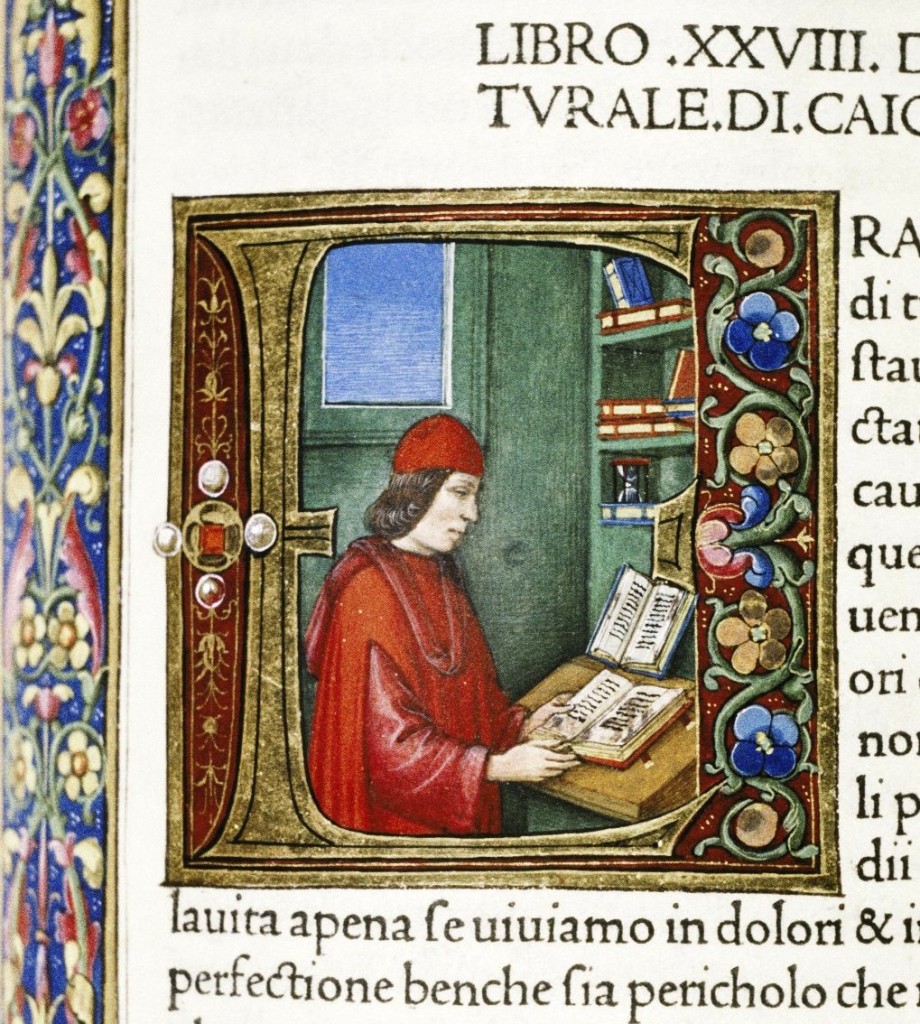 LIBRO .XXVIII. D
TVRALE.DI.CAIO
E RA
di t
ſtau
cta
cau
que
uen
ori
non
li p
dii
lauita apena ſe uiuiamo in dolori & i
perfectione benche ſia pericholo che